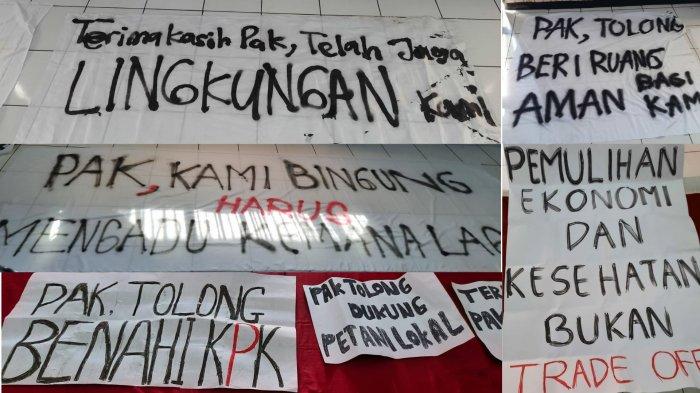 Terima kasih Pak, Telah Jaga
LINGKUNGAN Kami
PAK, TOLONG
BERI RUANG
AMAN BAGI
KAMI
PAK, KAMI BINGUNG
HARUS
MENGADU KEMANA LAG
PAK, TOLONG
BENAHI KPK
PAK TOLONG
DUKUNG
PETANI LOKAL
TER
PAK
PEMULIHAN
EKONOMI
DAN
KESEHATAN
BUKAN
TRADE OFF